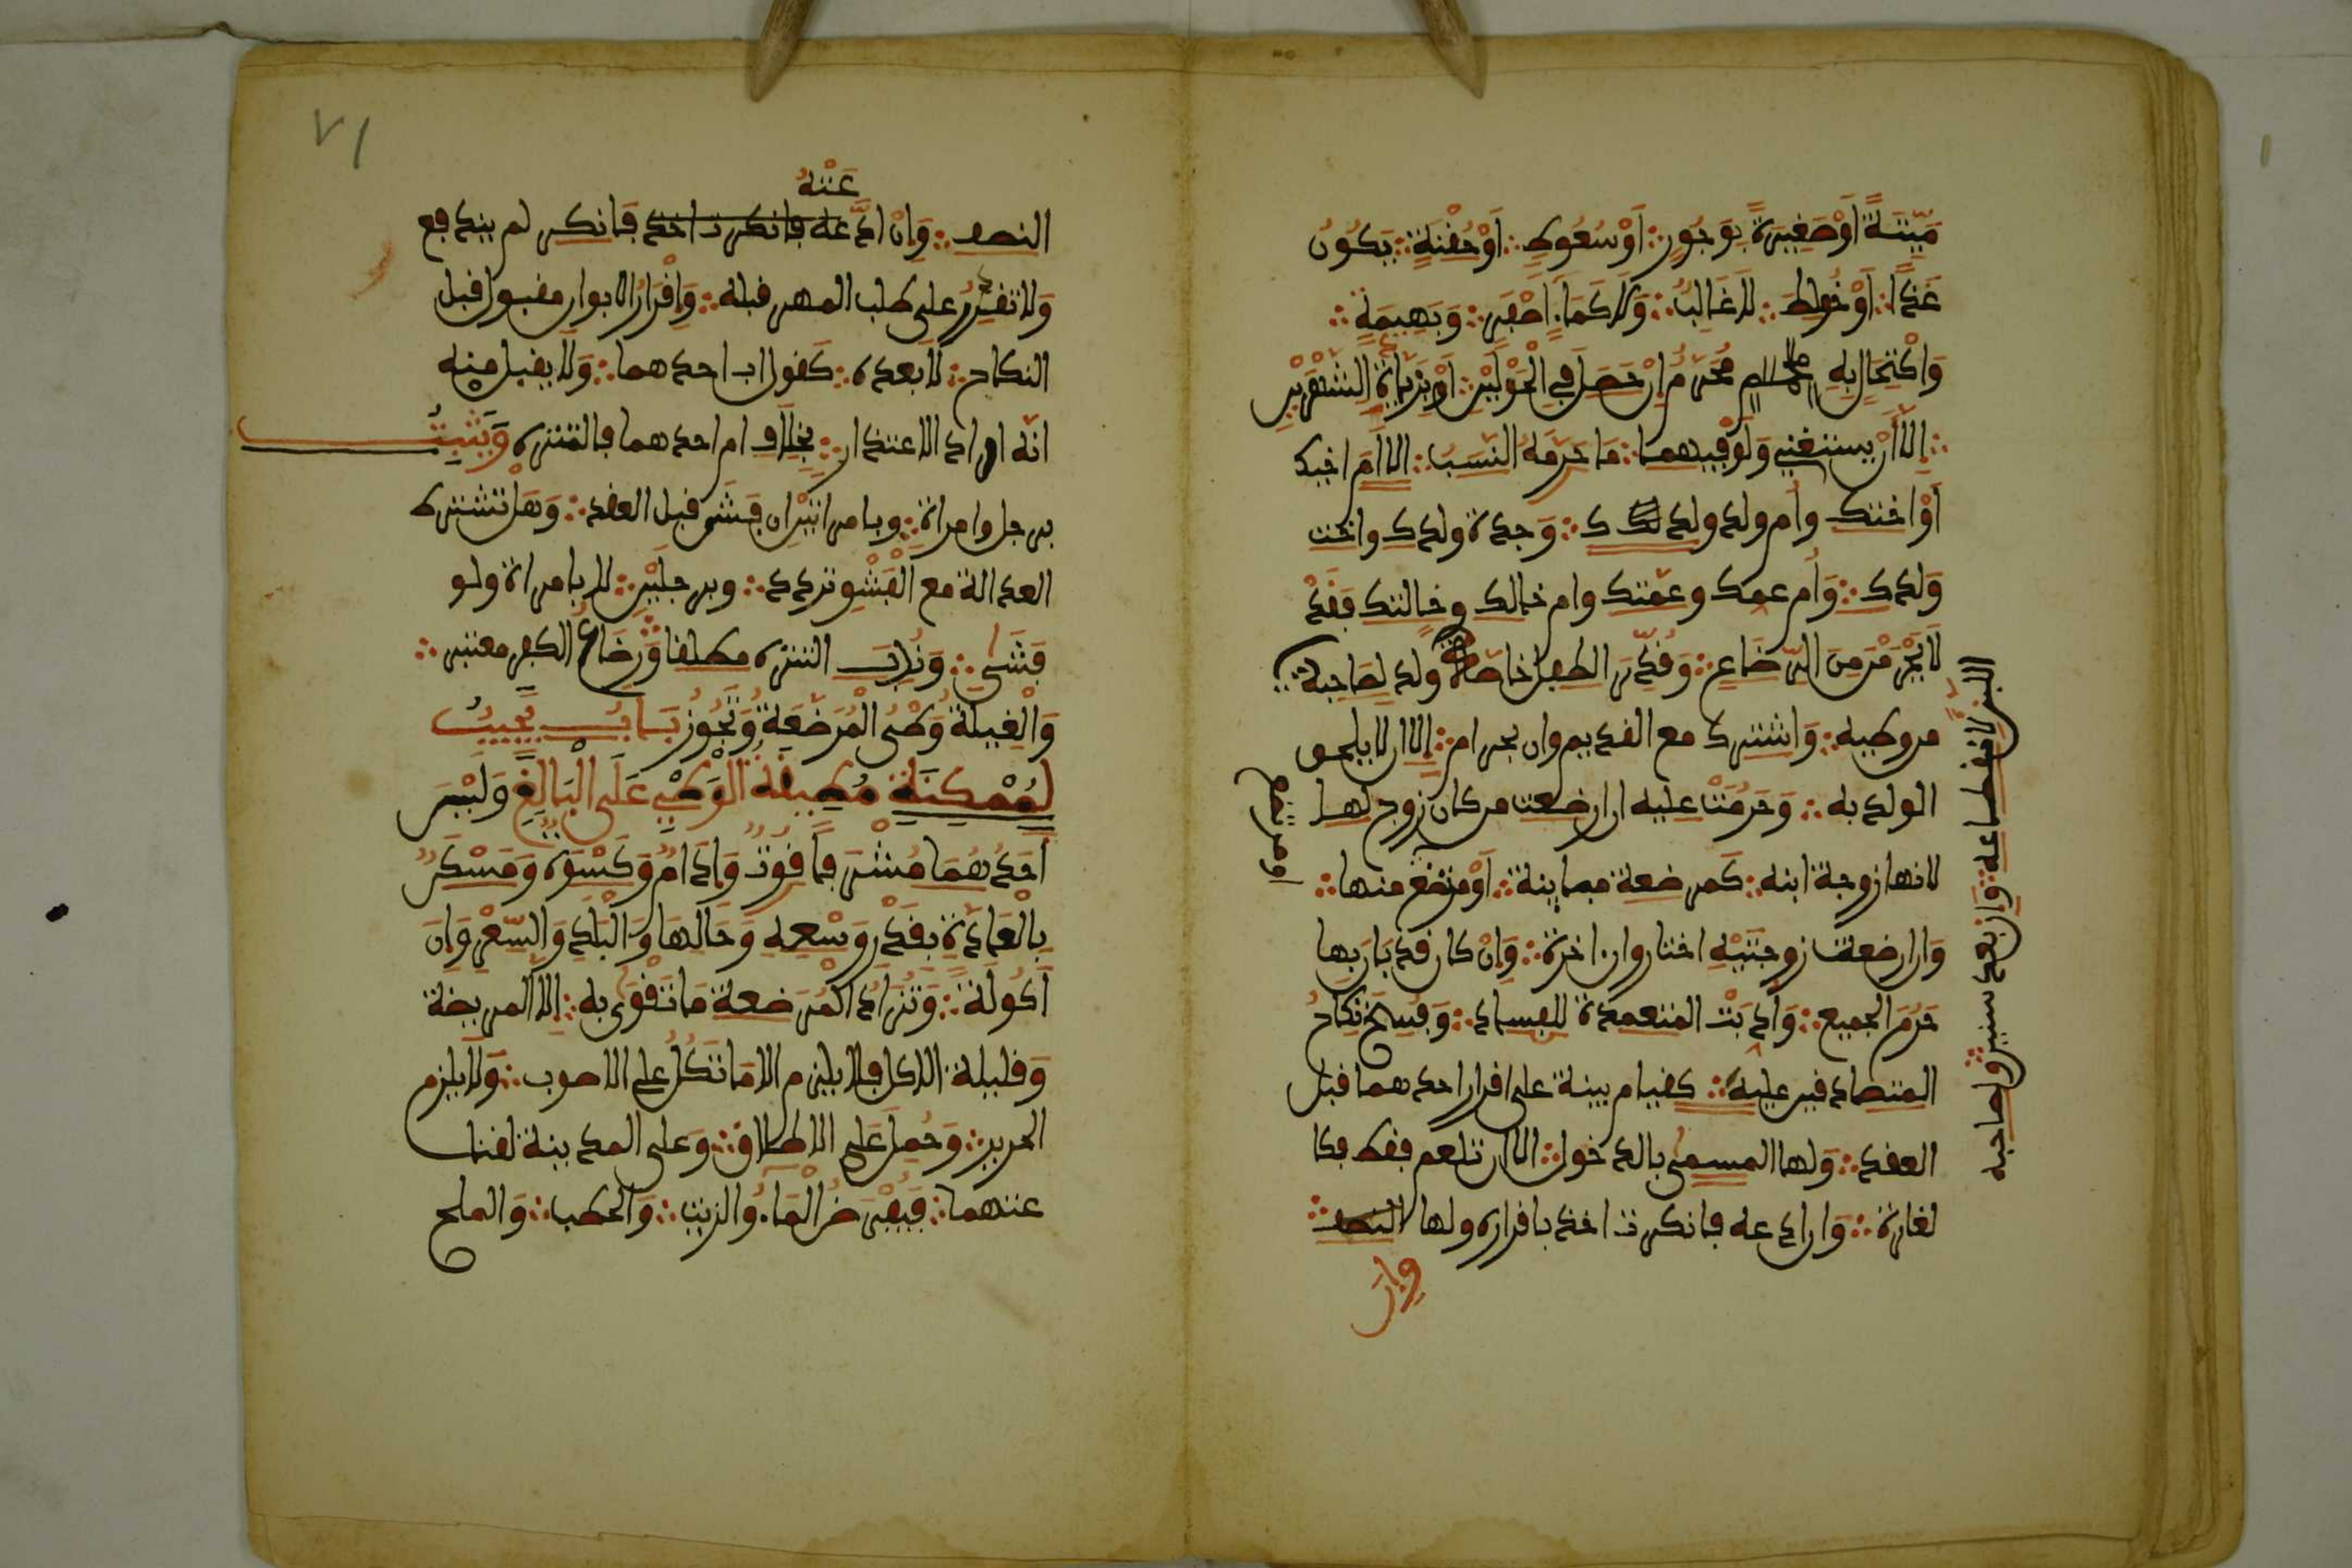 مَيِّتَةً أَوْ صَغِيرَةً بِوَجُورٍ أَوْ سُعُوطٍ أَوْ حُقْنَةٍ يَكُونُ
غذاء أَوْ خُلِطَ لا غَالِبٌ وَلا كماء أصْفَرَ وَبَهِيمَةٍ
وَاكْتِحَالٍ بِهِ مُحَرِّمٌ إن حَصَلَ فِي الْحَوْلَيْنِ أَوْ بِزِيَادَةِ الشَّهْرَيْنِ
إلا أن يستغني وَلَوْ فيهما مَا حَرَّمَهُ النَّسَبُ إلا أم أخيك
أَوْ أختك وأم ولد ولدك وَجدة ولدك وأخت
وَلدك وَأم عمك وعمتك وأم خالك وخالتك فَقَدْ
لَا يَحْرُمْنَ مِنَ الرَّضَاعِ وَقُدِّرَ الطفل خاصة ولد لصَاحبة
اللبن
لِصاحبه
من وطئه لانقطاعه وإن بعد سنين
وَاشترك مع القديم ولو بحرام إلا أن لا يلحق
الولد به وَحَرُمَتْ عليه إن أرضعت من كان زوجا لها
لأنها زوجة ابنه كَمرضعة مبانته أَوْ مرتضع منها
وَإن أرضعت زوجَتَيْهِ اختار وإن الأخيرة وَإِنْ كان قد بنى بها
حَرُمَ الجميع وَأُدِّبَتْ المتعمدة للفساد وَفُسِخَ نِكَاحُ
المتصادقين عليه كقيام بينة على إقرار أحدهما قبل
العقد وَلها المسمى بالدخول إلا أن تعلم فقط فكا
لغارة وَإن ادعاه فأنكرت أخذ بإقراره ولها النصف
وإن
٧١
عَنْهُ
النصف وَإِنْ ادَّعته فأنكر لم يندفع
وَلا تقدر على طلب المهر قبله وَإِقْرَارُ الأبوين مقبول قبل
النكاح لا بعده كَقول أب أحدهما وَلا يقبل منه
أنه أراد الاعتذار بِخلاف أم أحدهما فالتنزه وَيَثْبُتُ
برجل وامرأة وبامرأتين إن فَشَى قبل العقد وَهَلْ تشترط
العدالة مع الْفَشْوِ تردد وبرجلين لا بامرأة ولو
فَشَى وَنُدِبَ التنزه مطلقا وَرَضَاعُ الكفر معتبر
وَالْغِيلَةُ وَطْئُ الْمُرْضِعَةِ وَتَجُوزُ بَابٌ يَجِبُ
لِمُمْكِنَةٍ مُطِيقَةٍ الْوَطْيِ عَلَى الْبَالِغِ وَلَيْسَ
أَحَدُهُمَا مُشْرِفًا قُوتٌ وَإِدَامٌ وَكِسْوَة وَمَسْكَنٌ
بِالْعَادَةِ بِقَدْرِ وَسْعِهِ وَحَالِهَا وَالْبَلَدِ وَالسِّعْرِ وَإِنَ
أَكُولَةً وَتُزَادُ الْمُرضعة مَا تَقْوَى به إلا المريضة
وَقليلة الأكل فلا يلزم إلا مَا تَأكُلُ على الأصوب وَلا يلزم
الحرير وَحُمِلَ عَلَى الإطلاق وَعلى المدينة لقنا
عتهما فَيُفْرَضُ الْمَاء وَالزيت وَالحطب وَالملح